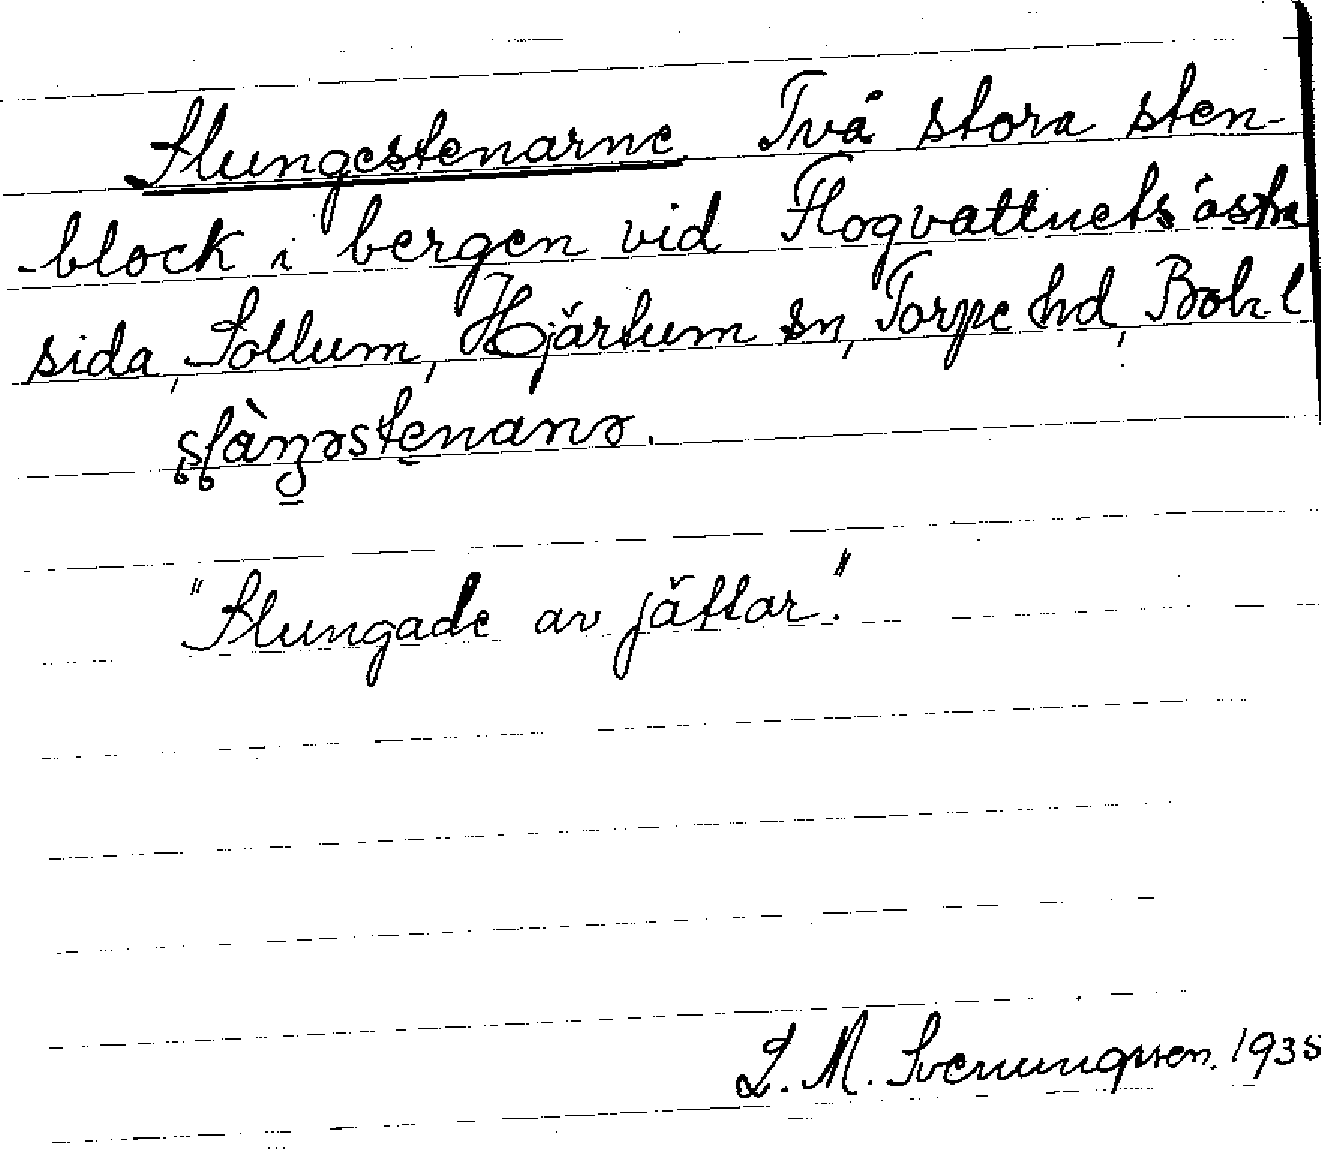 Slungestenarne Två stora sten-
block i bergen vid Flogvattnets östra
sida, Sollum, Hjärtum sn, Torpe hd, Bohl
"Slungade av jättar."
L. M. Svenungsson. 1935